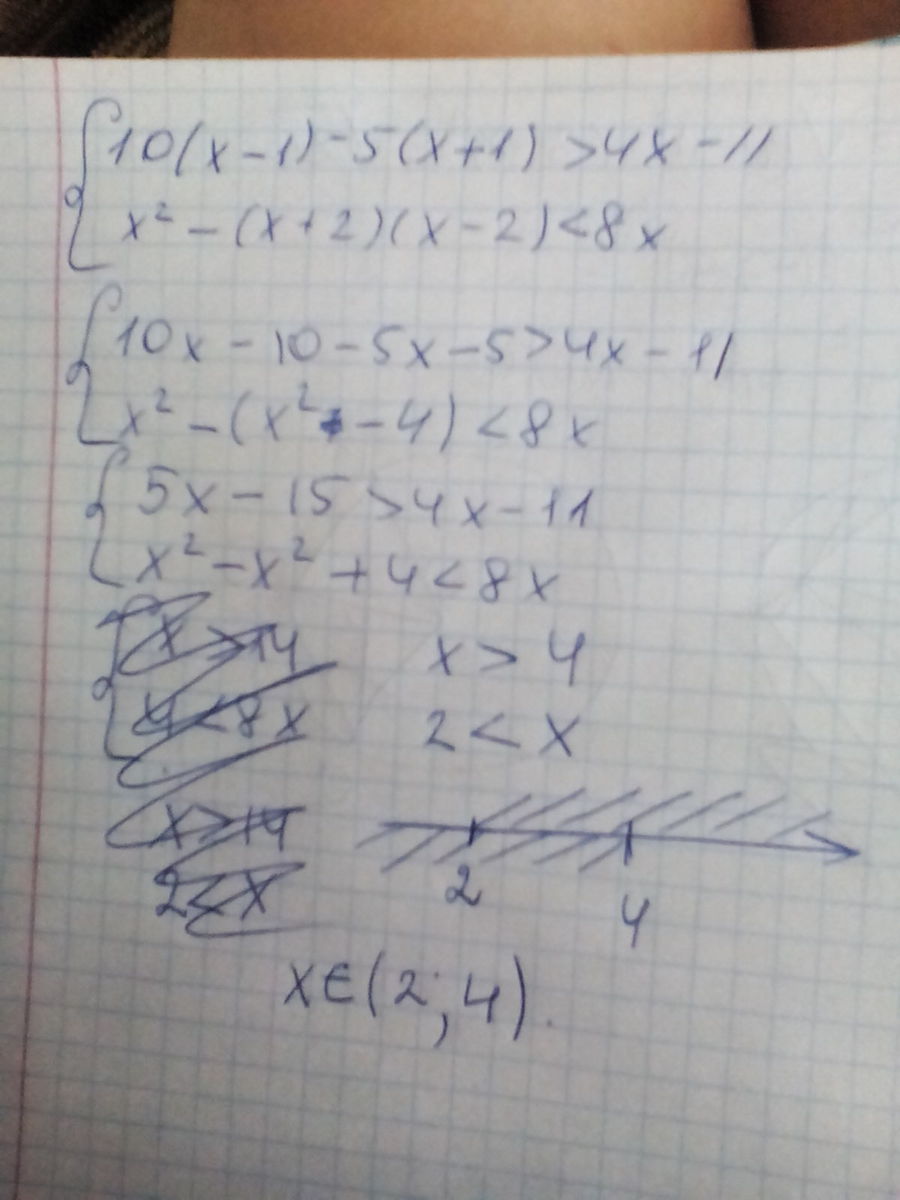 10(x-1)-5(x+1)>4x-11
x²-(x+2)(x-2)<8x
10x-10-5x-5>4x-11
x²-(x²-4)<8x
5x-15>4x-11
x²-x²+4<8x
x>14 x>4
4<8x 2<x
x>14
2<x
2 4
x∈(2;4).